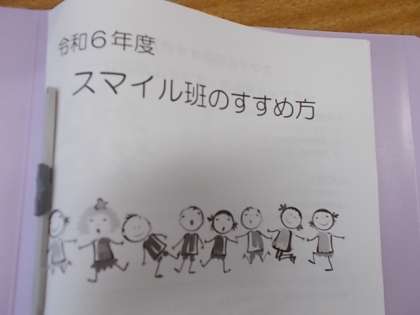 令和６年度
スマイル班のすすめ方